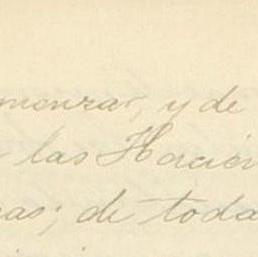 menzar, y de
las Hacien
as; de toda